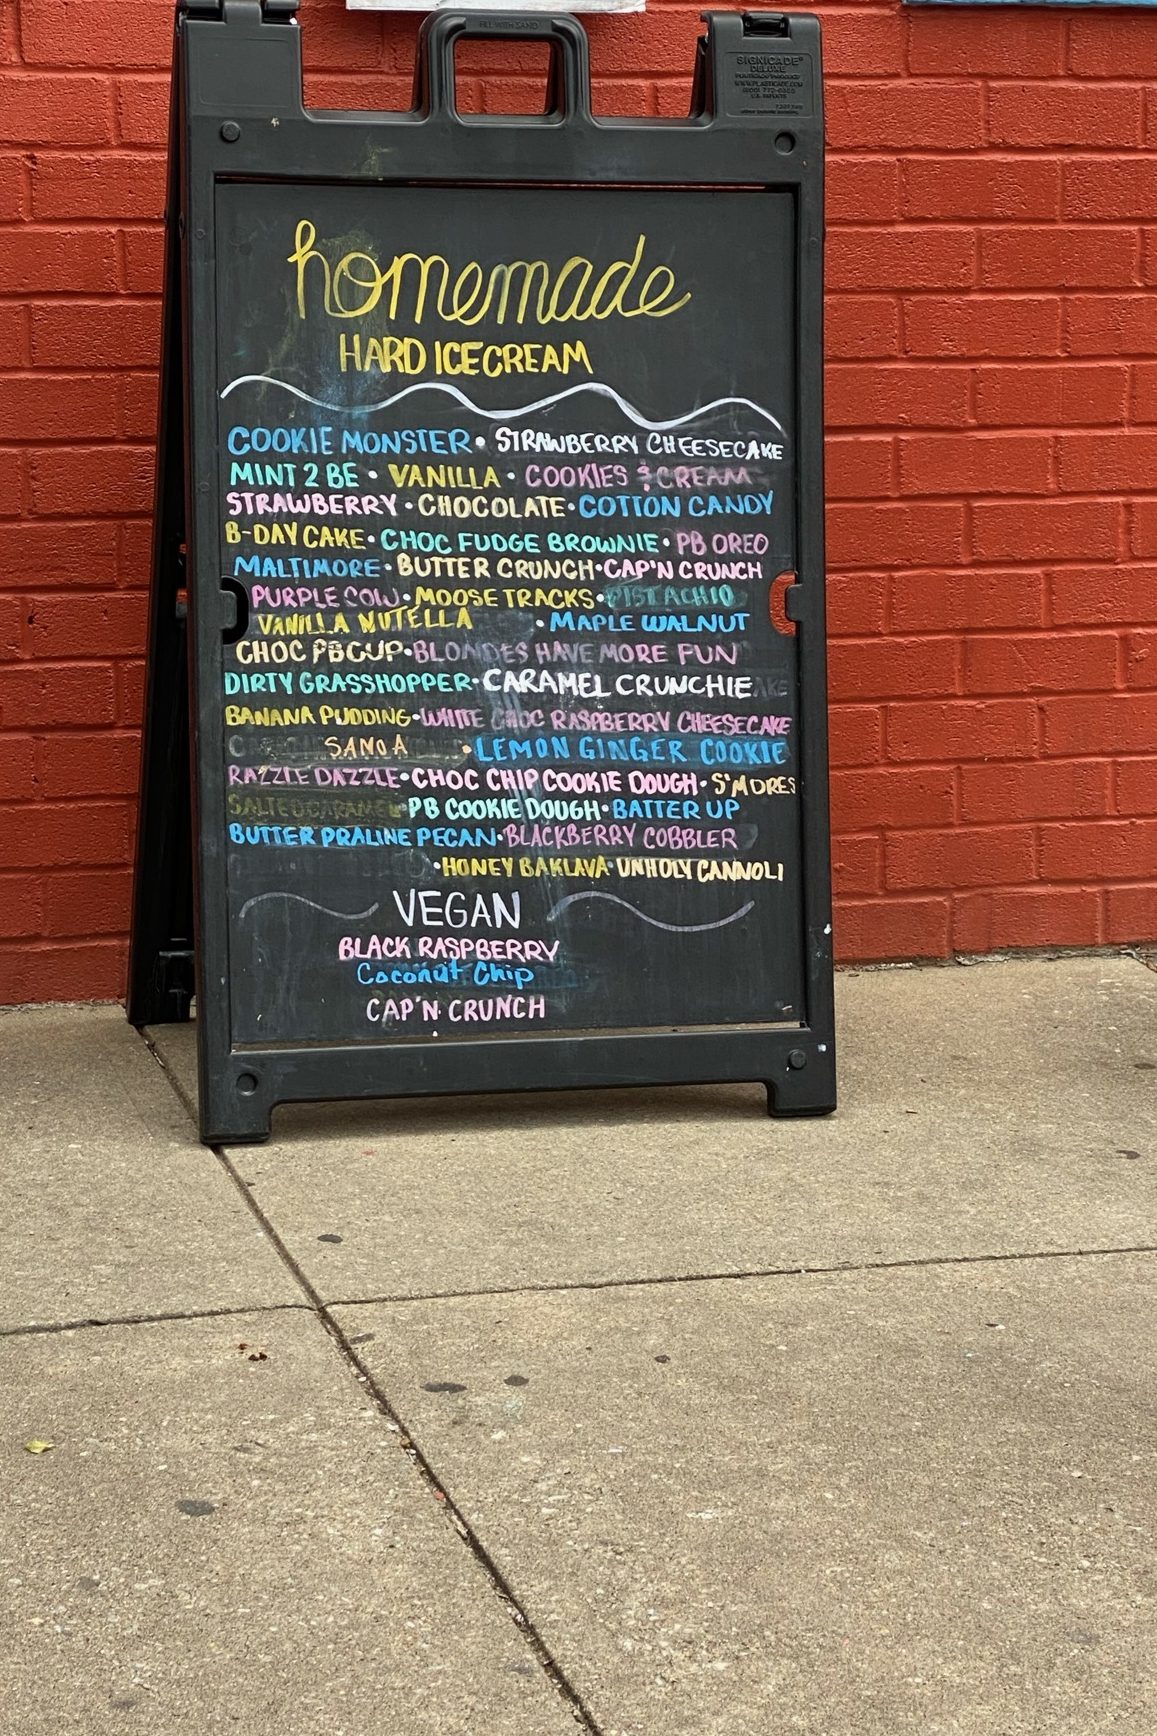 FILL WITH SAND
SIGNICADE®
DELUXE
homemade
HARD ICE CREAM
COOKIE MONSTER • STRAWBERRY CHEESECAKE
MINT 2 BE • VANILLA • COOKIES & CREAM
STRAWBERRY • CHOCOLATE • COTTON CANDY
B-DAY CAKE • CHOC FUDGE BROWNIE • PB OREO
MALTIMORE • BUTTER CRUNCH • CAP'N CRUNCH
PURPLE COW • MOOSE TRACKS • PISTACHIO
VANILLA NUTELLA • MAPLE WALNUT
CHOC PB CUP • BLONDES HAVE MORE FUN
DIRTY GRASSHOPPER • CARAMEL CRUNCHIE
BANANA PUDDING • WHITE CHOC RASPBERRY CHEESECAKE
SAMOA • LEMON GINGER COOKIE
RAZZLE DAZZLE • CHOC CHIP COOKIE DOUGH • S'MORES
SALTED CARAMEL • PB COOKIE DOUGH • BATTER UP
BUTTER PRALINE PECAN • BLACKBERRY COBBLER
• HONEY BAKLAVA • UNHOLY CANNOLI
VEGAN
BLACK RASPBERRY
Coconut Chip
CAP'N CRUNCH